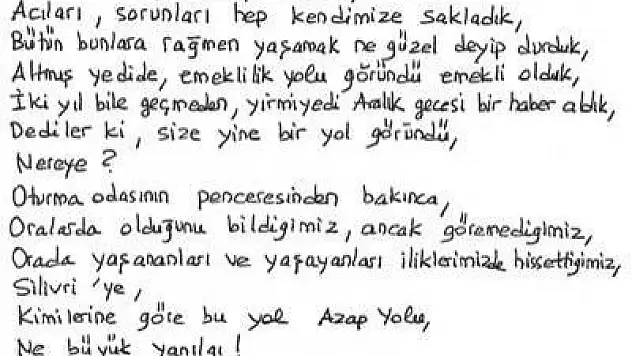 Acıları, sorunları hep kendimize sakladık,
Bütün bunlara rağmen yaşamak ne güzel deyip durduk,
Altmış yedide, emeklilik yolu göründü emekli olduk,
İki yıl bile geçmeden, yirmiyedi Aralık gecesi bir haber aldık,
Dediler ki, size yine bir yol göründü,
Nereye?
Oturma odasının penceresinden bakınca,
Oralarda olduğunu bildiğimiz, ancak göremediğimiz,
Orada yaşananları ve yaşayanları iliklerimizde hissettiğimiz,
Silivri'ye,
Kimilerine göre bu yol Azap Yolu,
Ne büyük yanılgı!